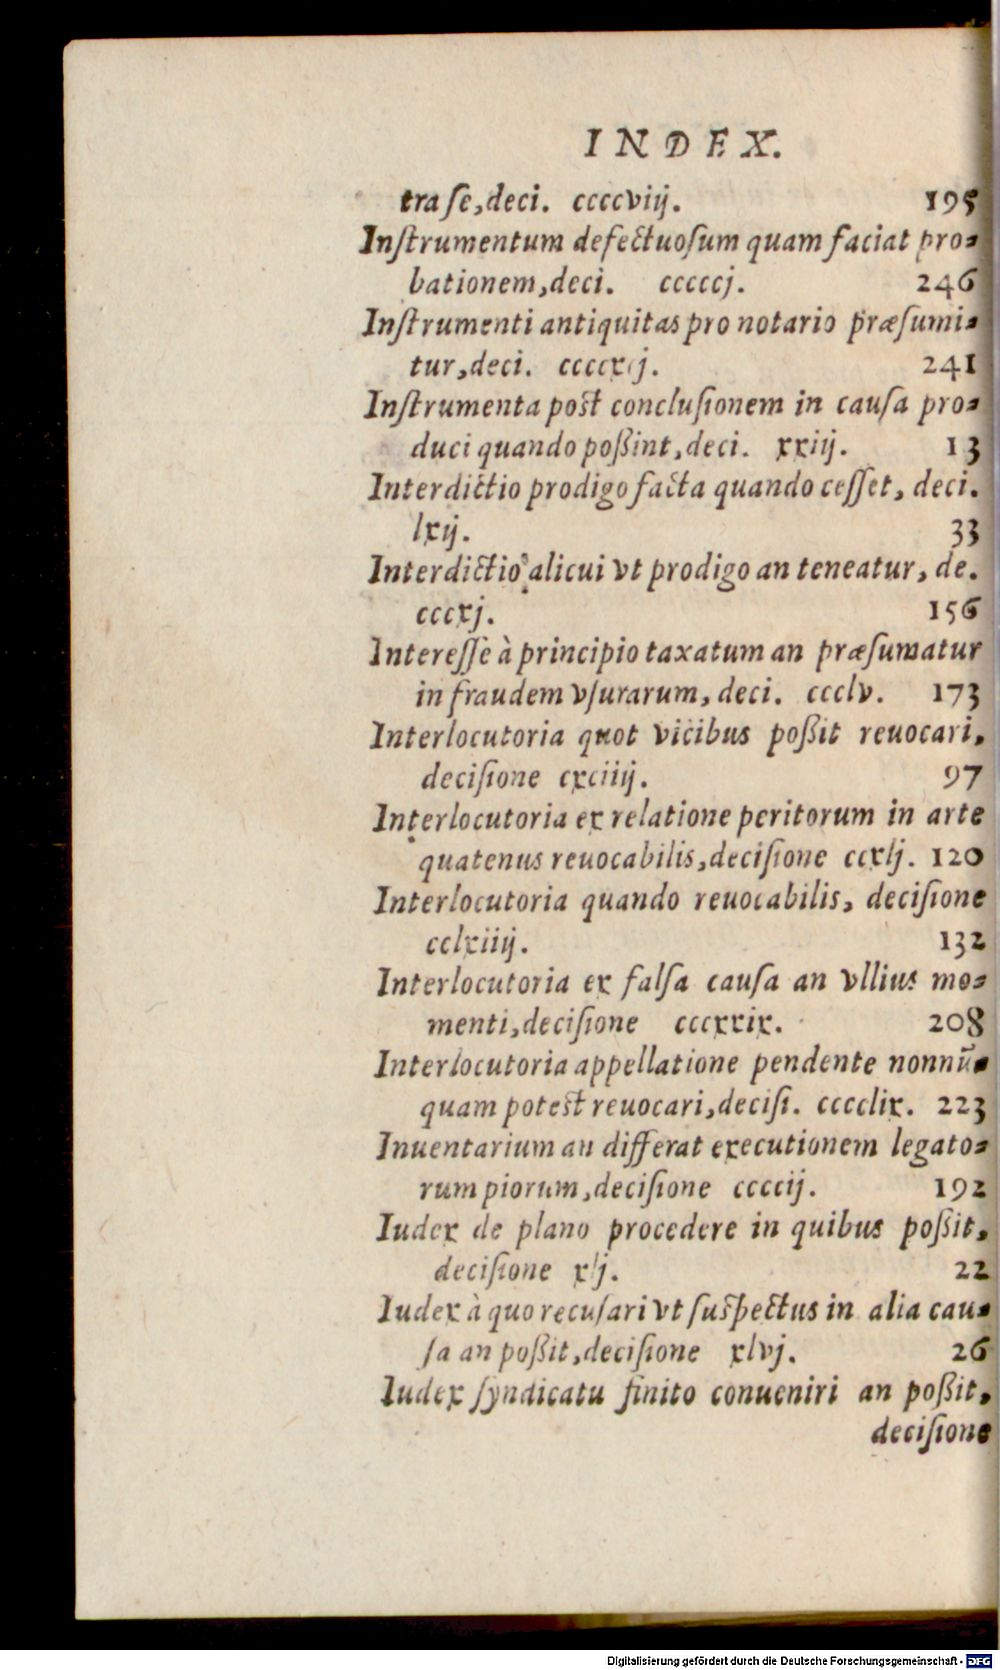 INDEX.
tra ſe, deci. ccccviij. 195
Inſtrumentum defectuoſum quam faciat pro-
bationem, deci. cccccj. 246
Inſtrumenti antiquitas pro notario præſumi-
tur, deci. ccccxcj. 241
Inſtrumenta post concluſionem in cauſa pro-
duci quando poßint, deci. xxiij. 13
Interdictio prodigo facta quando ceſſet, deci.
lxij. 33
Interdictio alicui vt prodigo an teneatur, de.
cccxj. 156
Intereſſe à principio taxatum an præſumatur
in fraudem vſurarum, deci. ccclv. 173
Interlocutoria quot vicibus poßit reuocari,
deciſione cxciiij. 97
Interlocutoria ex relatione peritorum in arte
quatenus reuocabilis, deciſione ccxlj. 120
Interlocutoria quando reuocabilis, deciſione
cclxiiij. 132
Interlocutoria ex falſa cauſa an vllius mo-
menti, deciſione cccxxix. 208
Interlocutoria appellatione pendente nonnū-
quam potest reuocari, deciſi. cccclix. 223
Inuentarium an differat executionem legato-
rum piorum, deciſione ccccij. 192
Iudex de plano procedere in quibus poßit,
deciſione xlj. 22
Iudex à quo recuſari vt ſuſpectus in alia cau-
ſa an poßit, deciſione xlvj. 26
Iudex ſyndicatu finito conueniri an poßit,
deciſione
Digitalisierung gefördert durch die Deutsche Forschungsgemeinschaft - DFG